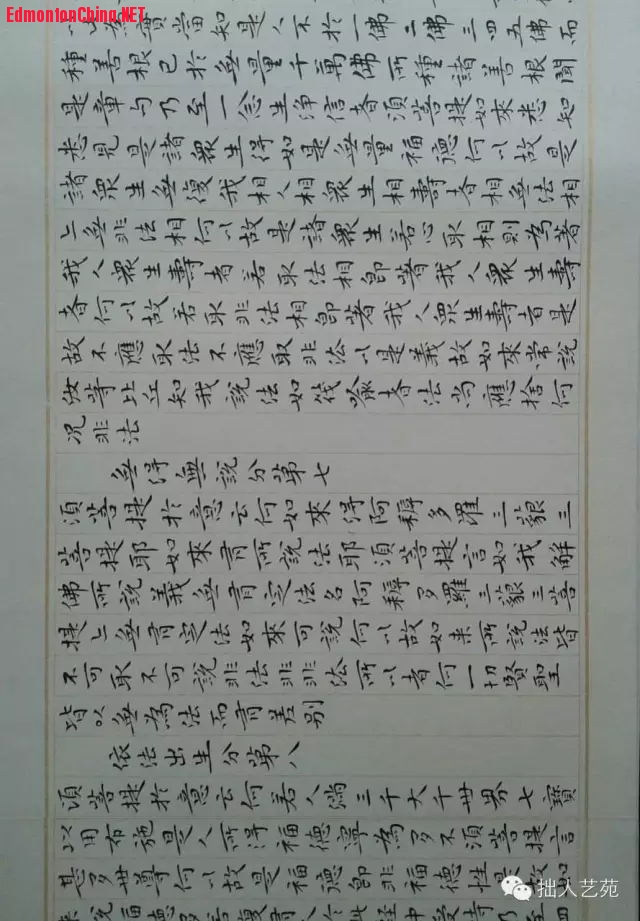 EdmontonChina.NET
以此為實當知是人不於一佛二佛三四五佛而
種善根已於無量千萬佛所種諸善根聞
是章句乃至一念生淨信者須菩提如來悉知
悉見是諸眾生得如是無量福德何以故是
諸眾生無復我相人相眾生相壽者相無法相
亦無非法相何以故是諸眾生若心取相則為著
我人眾生壽者若取法相即著我人眾生壽
者何以故若取非法相即著我人眾生壽者是
故不應取法不應取非法以是義故如來常說
汝等比丘知我說法如筏喻者法尚應捨何
況非法
無得無說分第七
須菩提於意云何如來得阿耨多羅三藐三
菩提耶如來有所說法耶須菩提言如我解
佛所說義無有定法名阿耨多羅三藐三菩
提亦無有定法如來可說何以故如來所說法皆
不可取不可說非法非非法所以者何一切賢聖
皆以無為法而有差別
依法出生分第八
須菩提於意云何若人滿三千大千世界七寶
以用布施是人所得福德寧為多不須菩提言
甚多世尊何以故是福德即非福德性是故如
來說福德多若復有人於此經中受持
拙人艺苑